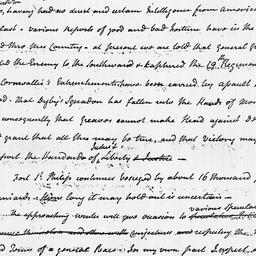 having had no direct and certain Intelligence from America
last. various reports of good and bad fortune have in the
thro this Country – at present we are told that General G
ed the Enemy to the Southward & captured the 19th Regiment
Cornwallis's Entrenchments have been carried by assault
ed. That Digby's Squadron has fallen into the Hands of Mon
consequently that Greaves cannot make Head against D
grant that all this may be true, and that Victory may
support the Standards of Liberty & Justice —
Fort St. Philip continues besieged by about 16 thousand
niards. How long it may hold out is uncertain —
the approaching winter will give occasion to various speculati
conjecture and respecting the
of a general Peace. For my own part I expect